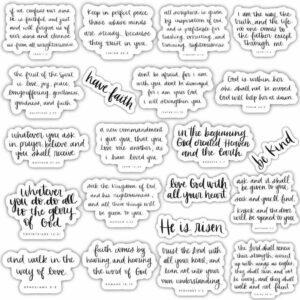 If we confess our sins
he is faithful and just
and will forgive us
our sins and cleanse
us from all unrighteousness
Keep in perfect peace
those whose minds
are steady, because
they trust in you.
all scripture is given
by inspiration of God,
and is profitable for
I am the way, the
truth, and the life
no one comes to
the father except
through me
the fruit of the Spirit
is love, joy, peace,
longsuffering, gentleness,
goodness, and faith
have faith
don't be afraid, for I am
with you. don't be dismayed
for I am your God
I will strengthen you
God is within her,
she shall not be moved
God will help her at dawn
whatever you ask
in prayer, believe and
you shall receive
a new commandment
I give you, that you
love one another, as
I have loved you
in the beginning
God created Heaven
and the Earth.
be kind
whatever
you do, do all
to the glory
of God
CORINTHIANS 10:31
seek the kingdom of God
and his righteousness,
and all these things will
be given to you
love God with
all your heart
He is risen
ask and it shall
be given to you,
seek and you'll find,
knock and the door
will be opened to you
and walk in the
way of love.
EPHESIANS 5:2
faith comes by
hearing, and hearing
the word of God
trust the Lord with
all your heart, and
lean not into your
own understanding
the Lord shall renew
their strength, mount
up with wings as eagles,
they shall run and not
be weary, they shall
walk and not faint